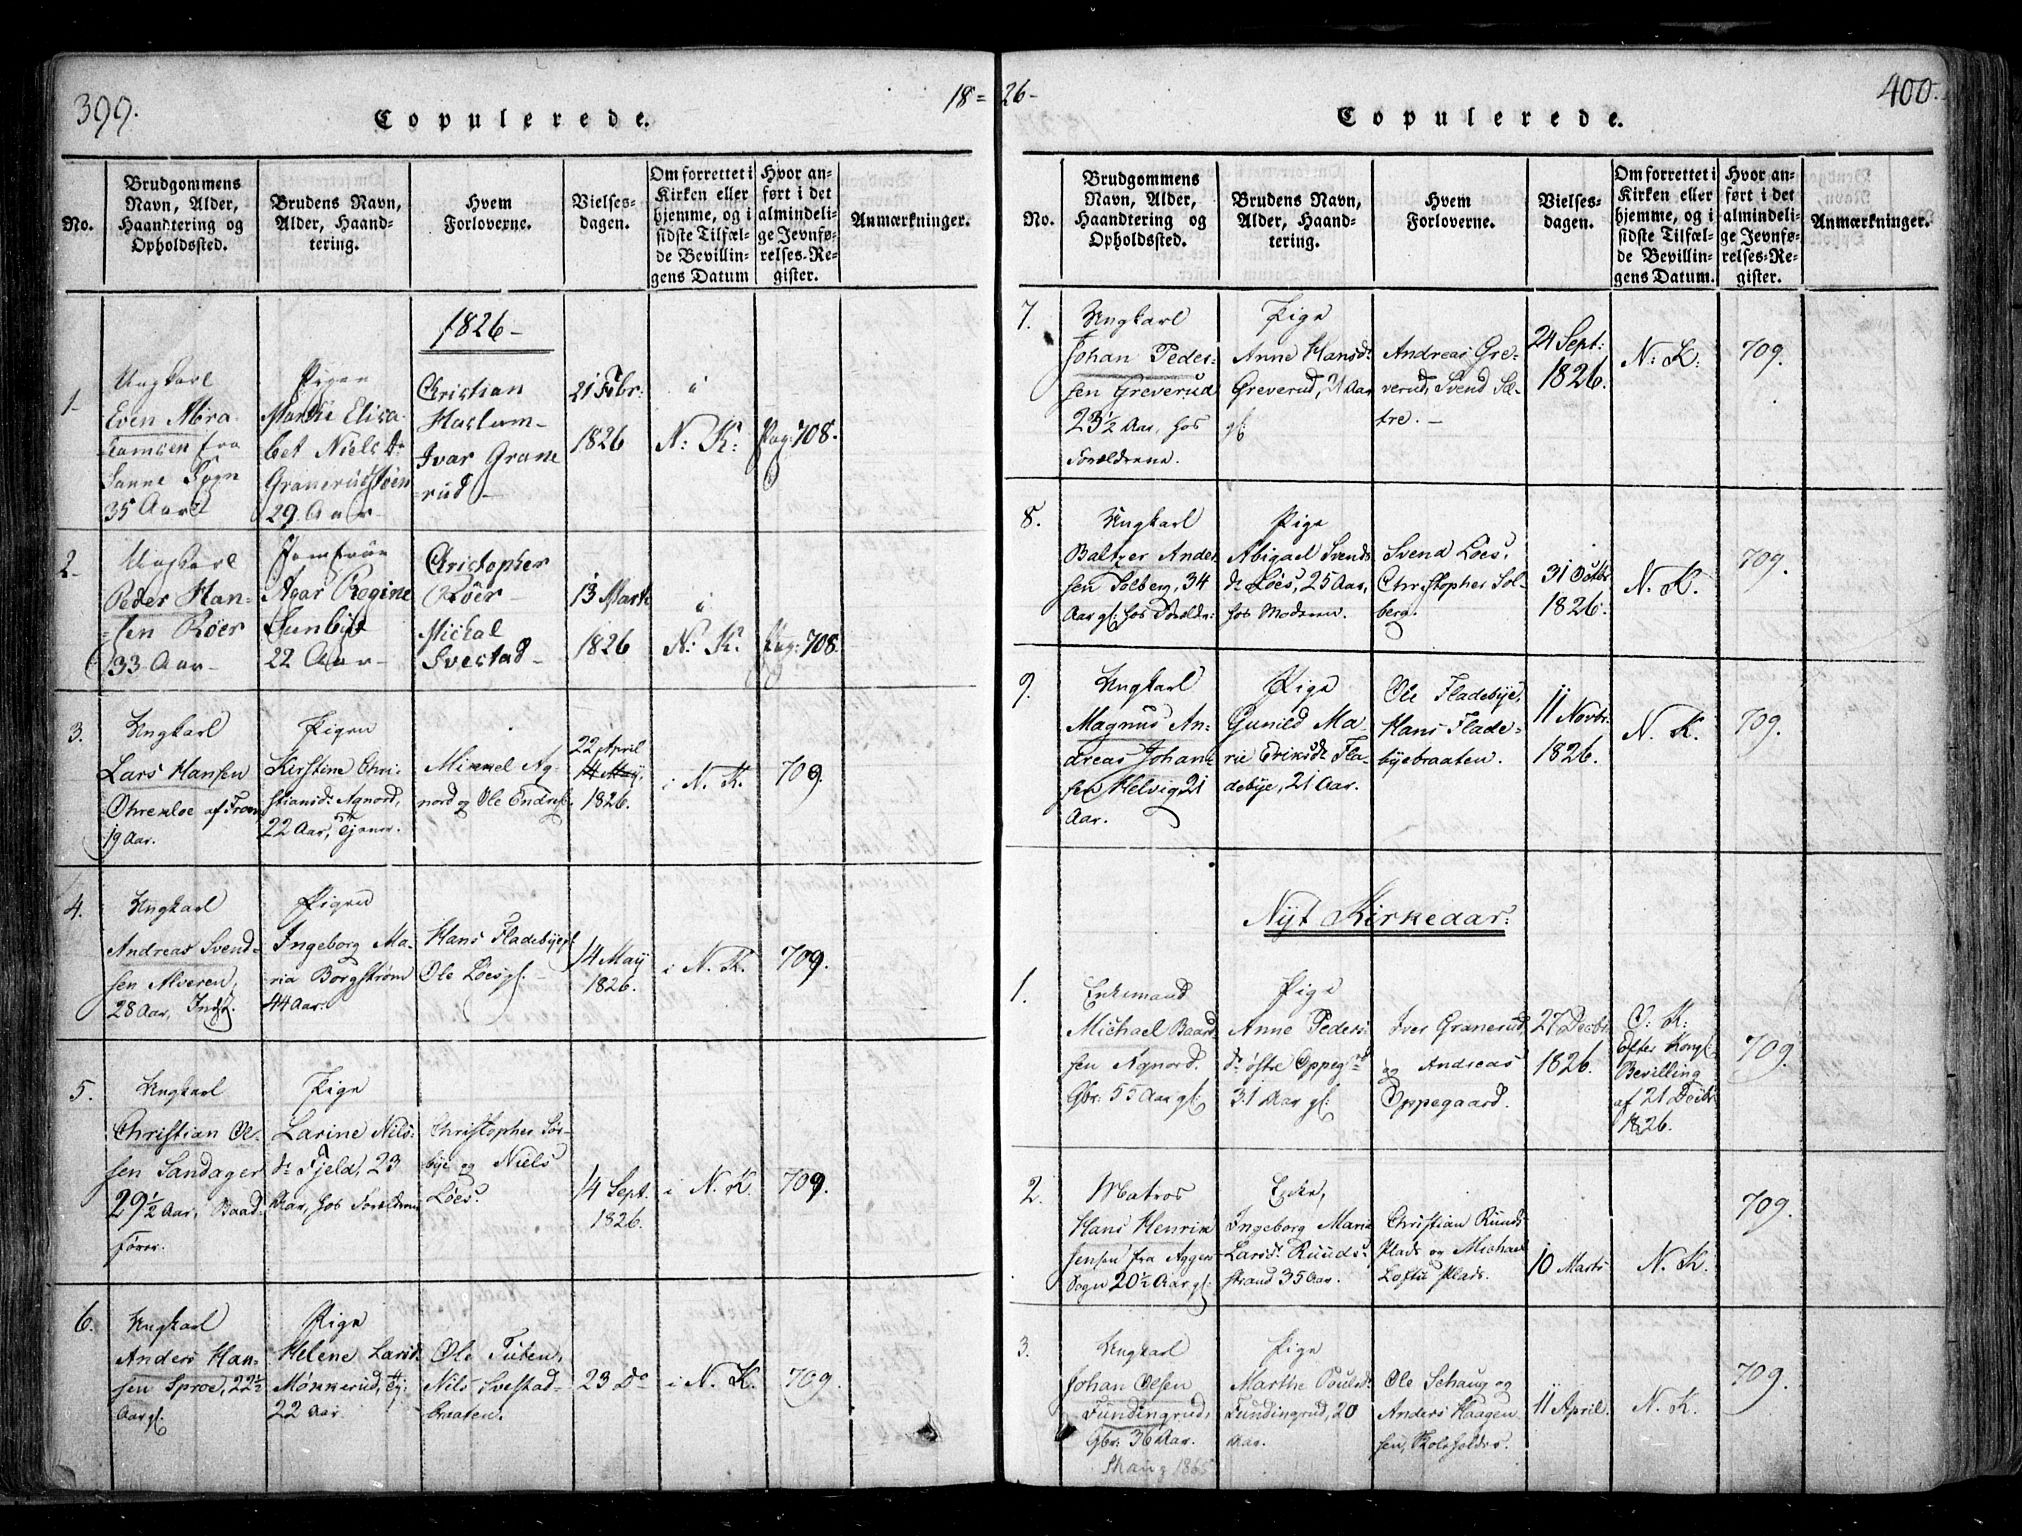 399.
18=26-
400.
Copulerede.
No.
Brudgommens
Navn, Alder,
Haandtering og
Opholdssted.
Brudens Navn,
Alder, Haand-
tering.
Hvem
Forloverne.
Vielses-
dagen.
Om forrettet i
Kirken eller
hjemme, og i
sidste Tilfæl-
de Bevillin-
gens Datum
Hvor an-
ført i det
almindeli-
ge Jevnfø-
relses-Re-
gister.
Anmærkninger.
1826-
1-
Ungkarl
Even Abra-
hamsen fra
Sanne Sogn
35 Aar
Pigen
Marthe Elisa-
bet Niels d.
Granerudstøen
29 Aar-
Christian
Haslum-
Ivar Grane
=rud-
21 Febr:
1826
i
N: K:
Pag: 708.
2-
Ungkarl
Peder Han-
=sen Röer
33 Aar-
Jomfrue
Agar Regine
Sunbye
22 Aar-
Christopher
Röer-
Michal
Svestad-
13 Marts
1826
i
N: K.
Pag: 708.
3.
Ungkarl
Lars Hansen
Ohrenloe af Froen
19 Aar.
Pigen
Kirstine Chri-
stiansd. Agnord,
22 Aar, Tjener.
Mikkel Ag-
nord og Ole Endres.
22 April
14 May
1826.
i N. K.
709.
4.
Ungkarl
Andreas Svend-
sen Alveren,
28 Aar, Indst.
Pigen
Ingeborg Ma-
ria Borgstrøm
44 Aar.
Hans Fladebye og
Ole Löes gl. -
14 May
1826.
i N. K.
709.
5.
Ungkarl
Christian Ol-
sen Sandager
29½ Aar, Baad-
fører.
Pige
Larine Nils-
d. Fjeld, 23
Aar, hos Forældrene
Christopher Sør-
bye og Niels
Löes.
14 Sept.
1826.
i N. K.
709.
6.
Ungkarl
Anders Han-
sen Sproe, 22½
Aar gl.
Pige
Helene Larsd.
Mönkerud, Tj:
22 Aar.
Ole Tuten,
Nils Svestad-
braaten.
23 Do
i N. K.
709.
Copulerede.
No.
Brudgommens
Navn, Alder,
Haandtering og
Opholdssted.
Brudens Navn,
Alder, Haand-
tering.
Hvem
Forloverne.
Vielses-
dagen.
Om forrettet i
Kirken eller
hjemme, og i
sidste Tilfæl-
de Bevillin-
gens Datum.
Hvor an-
ført i det
almindeli-
ge Jevnfø-
relses-Re-
gister.
Anmærkninger.
7.
Ungkarl
Johan Peder-
sen Greverud
23½ Aar, hos
Forældrene.
Pige
Anne Hansd.
Greverud, 21 Aar
gl.
Andreas Gre-
verud, Svend Sæ-
tre. -
24 Sept:
1826.
N: K:
709.
8.
Ungkarl
Baltzer Ander
sen Solberg, 34
Aar gl: hos Forældr:
Pige
Abigael Svends
d. Löes, 25 Aar,
hos Moderen.
Svend Löes,
Christopher Sol-
berg.
31 Octbr
1826.
N. K.
709.
9.
Ungkarl
Magnus An-
dreas Johan-
sen Helvig, 21
Aar.
Pige
Gunild Ma-
rie Eriksd. Fla-
debye, 21 Aar.
Ole Fladebye,
Hans Flade-
byebraaten.
11 Novbr.
1826.
N. K.
709.
Nyt Kirkeaar:
1.
Enkemand
Michael Baard
sen Agnord.
Gbr: 55 Aar gl:
Pige
Anne Peders-
d. øfre Oppegrd
31 Aar gl:
Iver Granerud,
og Andreas
Oppegaard.
27 Decbr.
1826.
O: K:
efter Kongl:
Bevilling
af 21 Decbr
1826.
709.
2.
Matros
Hans Henrik
Jensen fra Aggers
Sogn 20½ Aar gl:
Enke,
Ingeborg Marie
Larsd. Ruuds-
strand 35 Aar.
Christian Ruuds
Plads og Michael
Lofts Plads.
10 Marts
N. K.
709.
3.
Ungkarl
Johan Olsen
Fundingrud,
Gbr: 36 Aar.
Skaug 1865
Pige
Marthe Poulsd.
Fundingrud, 20
Aar.
Ole Schaug og
Anders Haagen
sen, Skoleholder.
11 April.
N. K.
709.